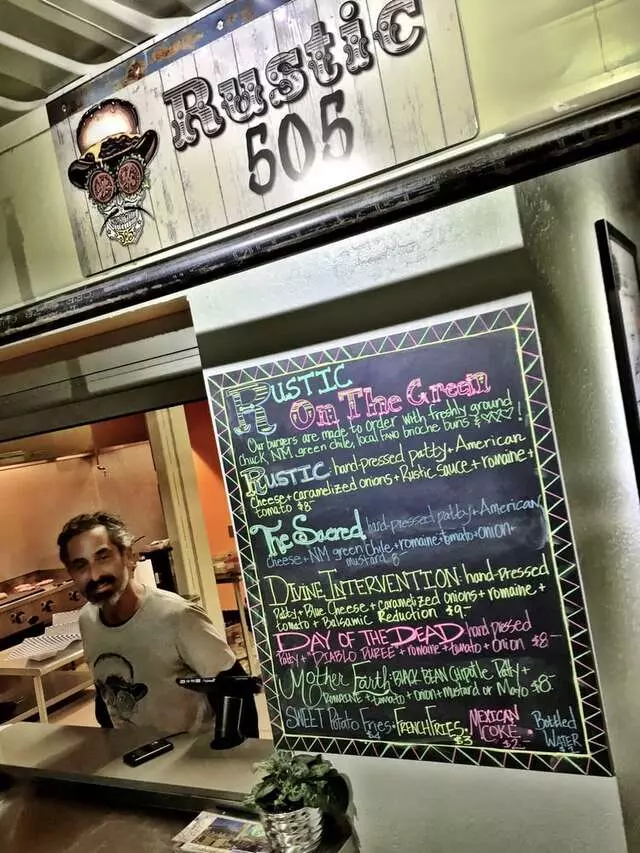 Rustic
505
RUSTIC
On The Green
Our burgers are made to order with freshly ground
chuck, NM green chile, local FANO brioche buns !
RUSTIC: hand-pressed patty + American
Cheese + caramelized onions + Rustic sauce + romaine +
tomato $8-
The Sacred hand-pressed patty + American
cheese + NM green Chile + romaine + tomato + onion +
mustard 8
DIVINE INTERVENTION: hand-pressed
Patty + Blue Cheese + caramelized onions + romaine +
tomato + Balsamic Reduction $9-
DAY OF THE DEAD hand pressed
Patty + "DIABLO PUREE" + romaine + tomato + onion $8-
Mother Earth: BLACK BEAN Chipotle Patty +
ROMAINE + tomato + onion + mustard or Mayo $8-
SWEET Potato Fries • FRENCH FRIES • MEXICAN COKE • Bottled WATER
$4 $3 $2-